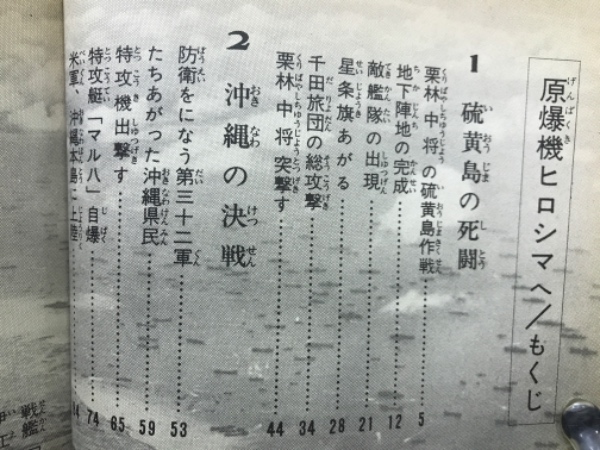 原爆機ヒロシマへ/もくじ
1 硫黄島の死闘
栗林中将の硫黄島作戦 5
地下陣地の完成 12
敵艦隊の出現 21
星条旗あがる 28
千田旅団の総攻撃 34
栗林中将突撃す 44
2 沖縄の決戦
防衛をになう第三十二軍 53
たちあがった沖縄県民 59
特攻機出撃す 65
特攻艇「マル八」自爆 74
米軍、沖縄本島に上陸
戦艦